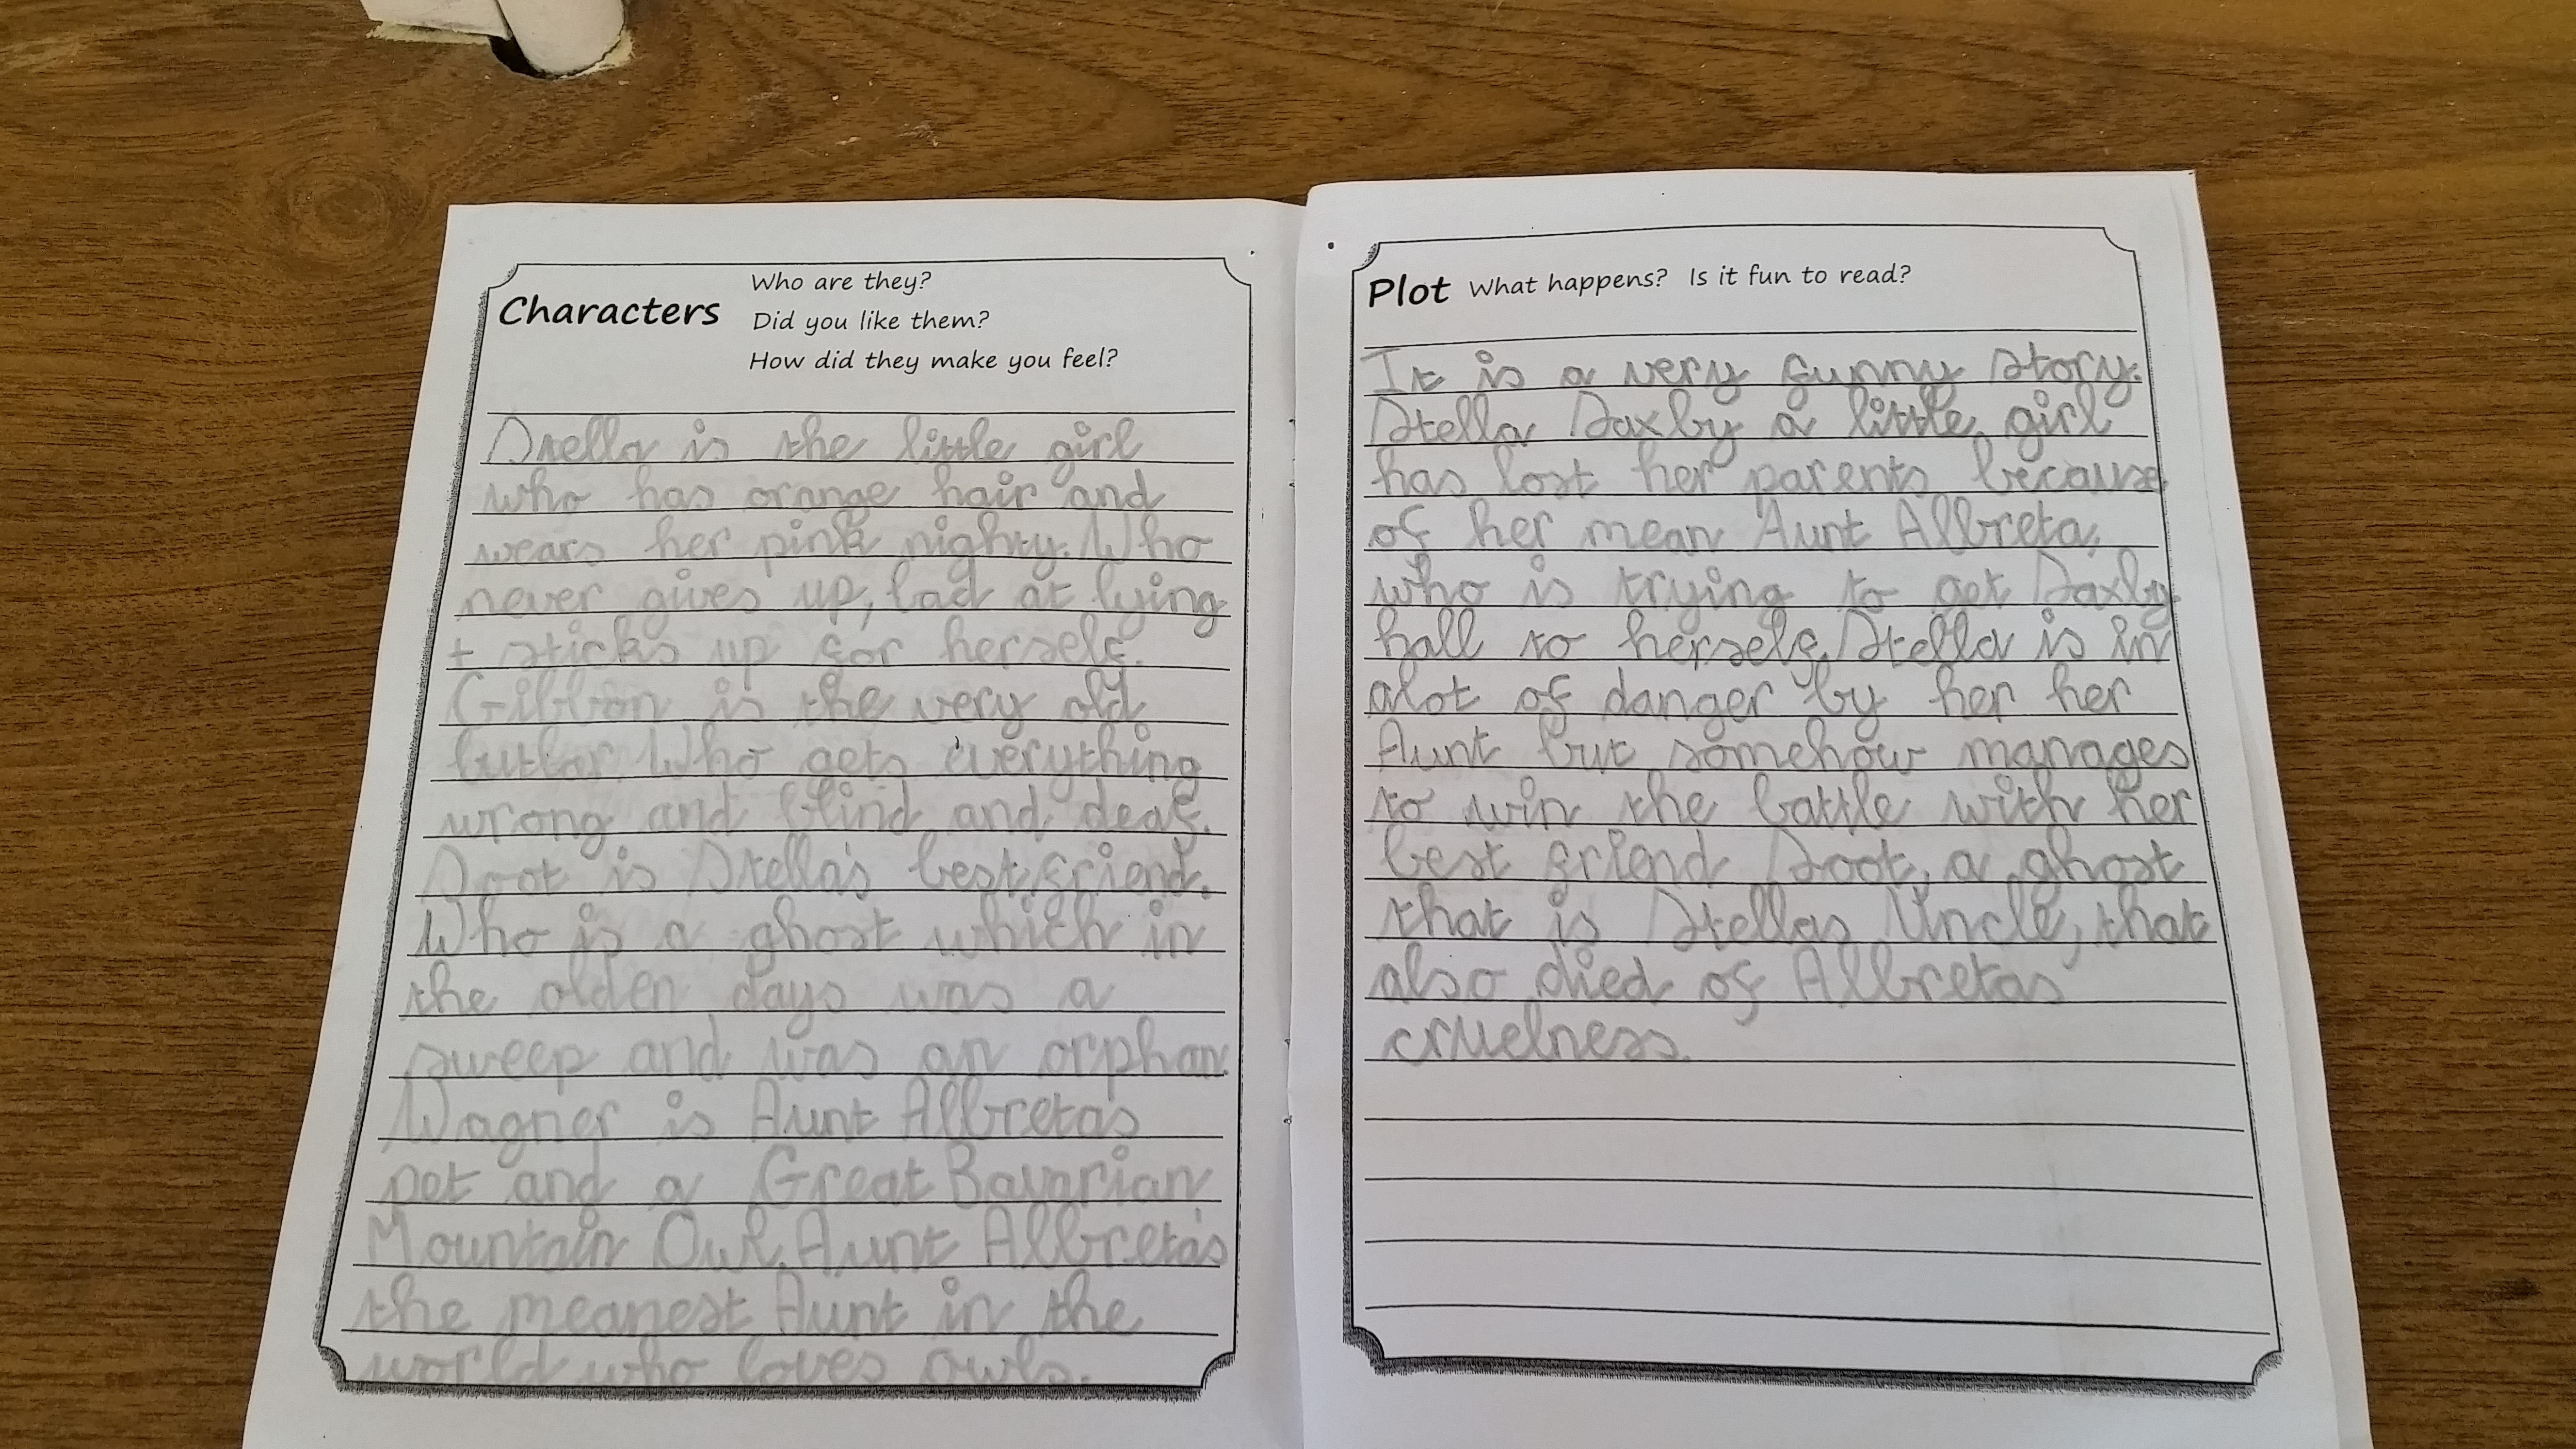 Characters
Who are they?
Did you like them?
How did they make you feel?
Stella is the little girl
who has orange hair and
wears her pink nighty. Who
never gives up, bad at lying
+ sticks up for herself.
Gibbon is the very old
butlar. Who gets everything
wrong and blind and deaf.
Soot is Stella's best friend.
Who is a ghost which in
the olden days was a
sweep and was an orphan.
Wagner is Aunt Albretas
pet and a Great Bavarian
Mountain Owl. Aunt Albreta's
the meanest Aunt in the
world who loves owls.
Plot What happens? Is it fun to read?
It is a very funny story.
Stella Saxby a little girl
has lost her parents because
of her mean Aunt Albreta,
who is trying to get Saxby
hall to herself. Stella is in
alot of danger by her her
Aunt but somehow manages
to win the battle with her
best friend Soot, a ghost
that is Stellas Uncle, that
also died of Albretas
cruelness.